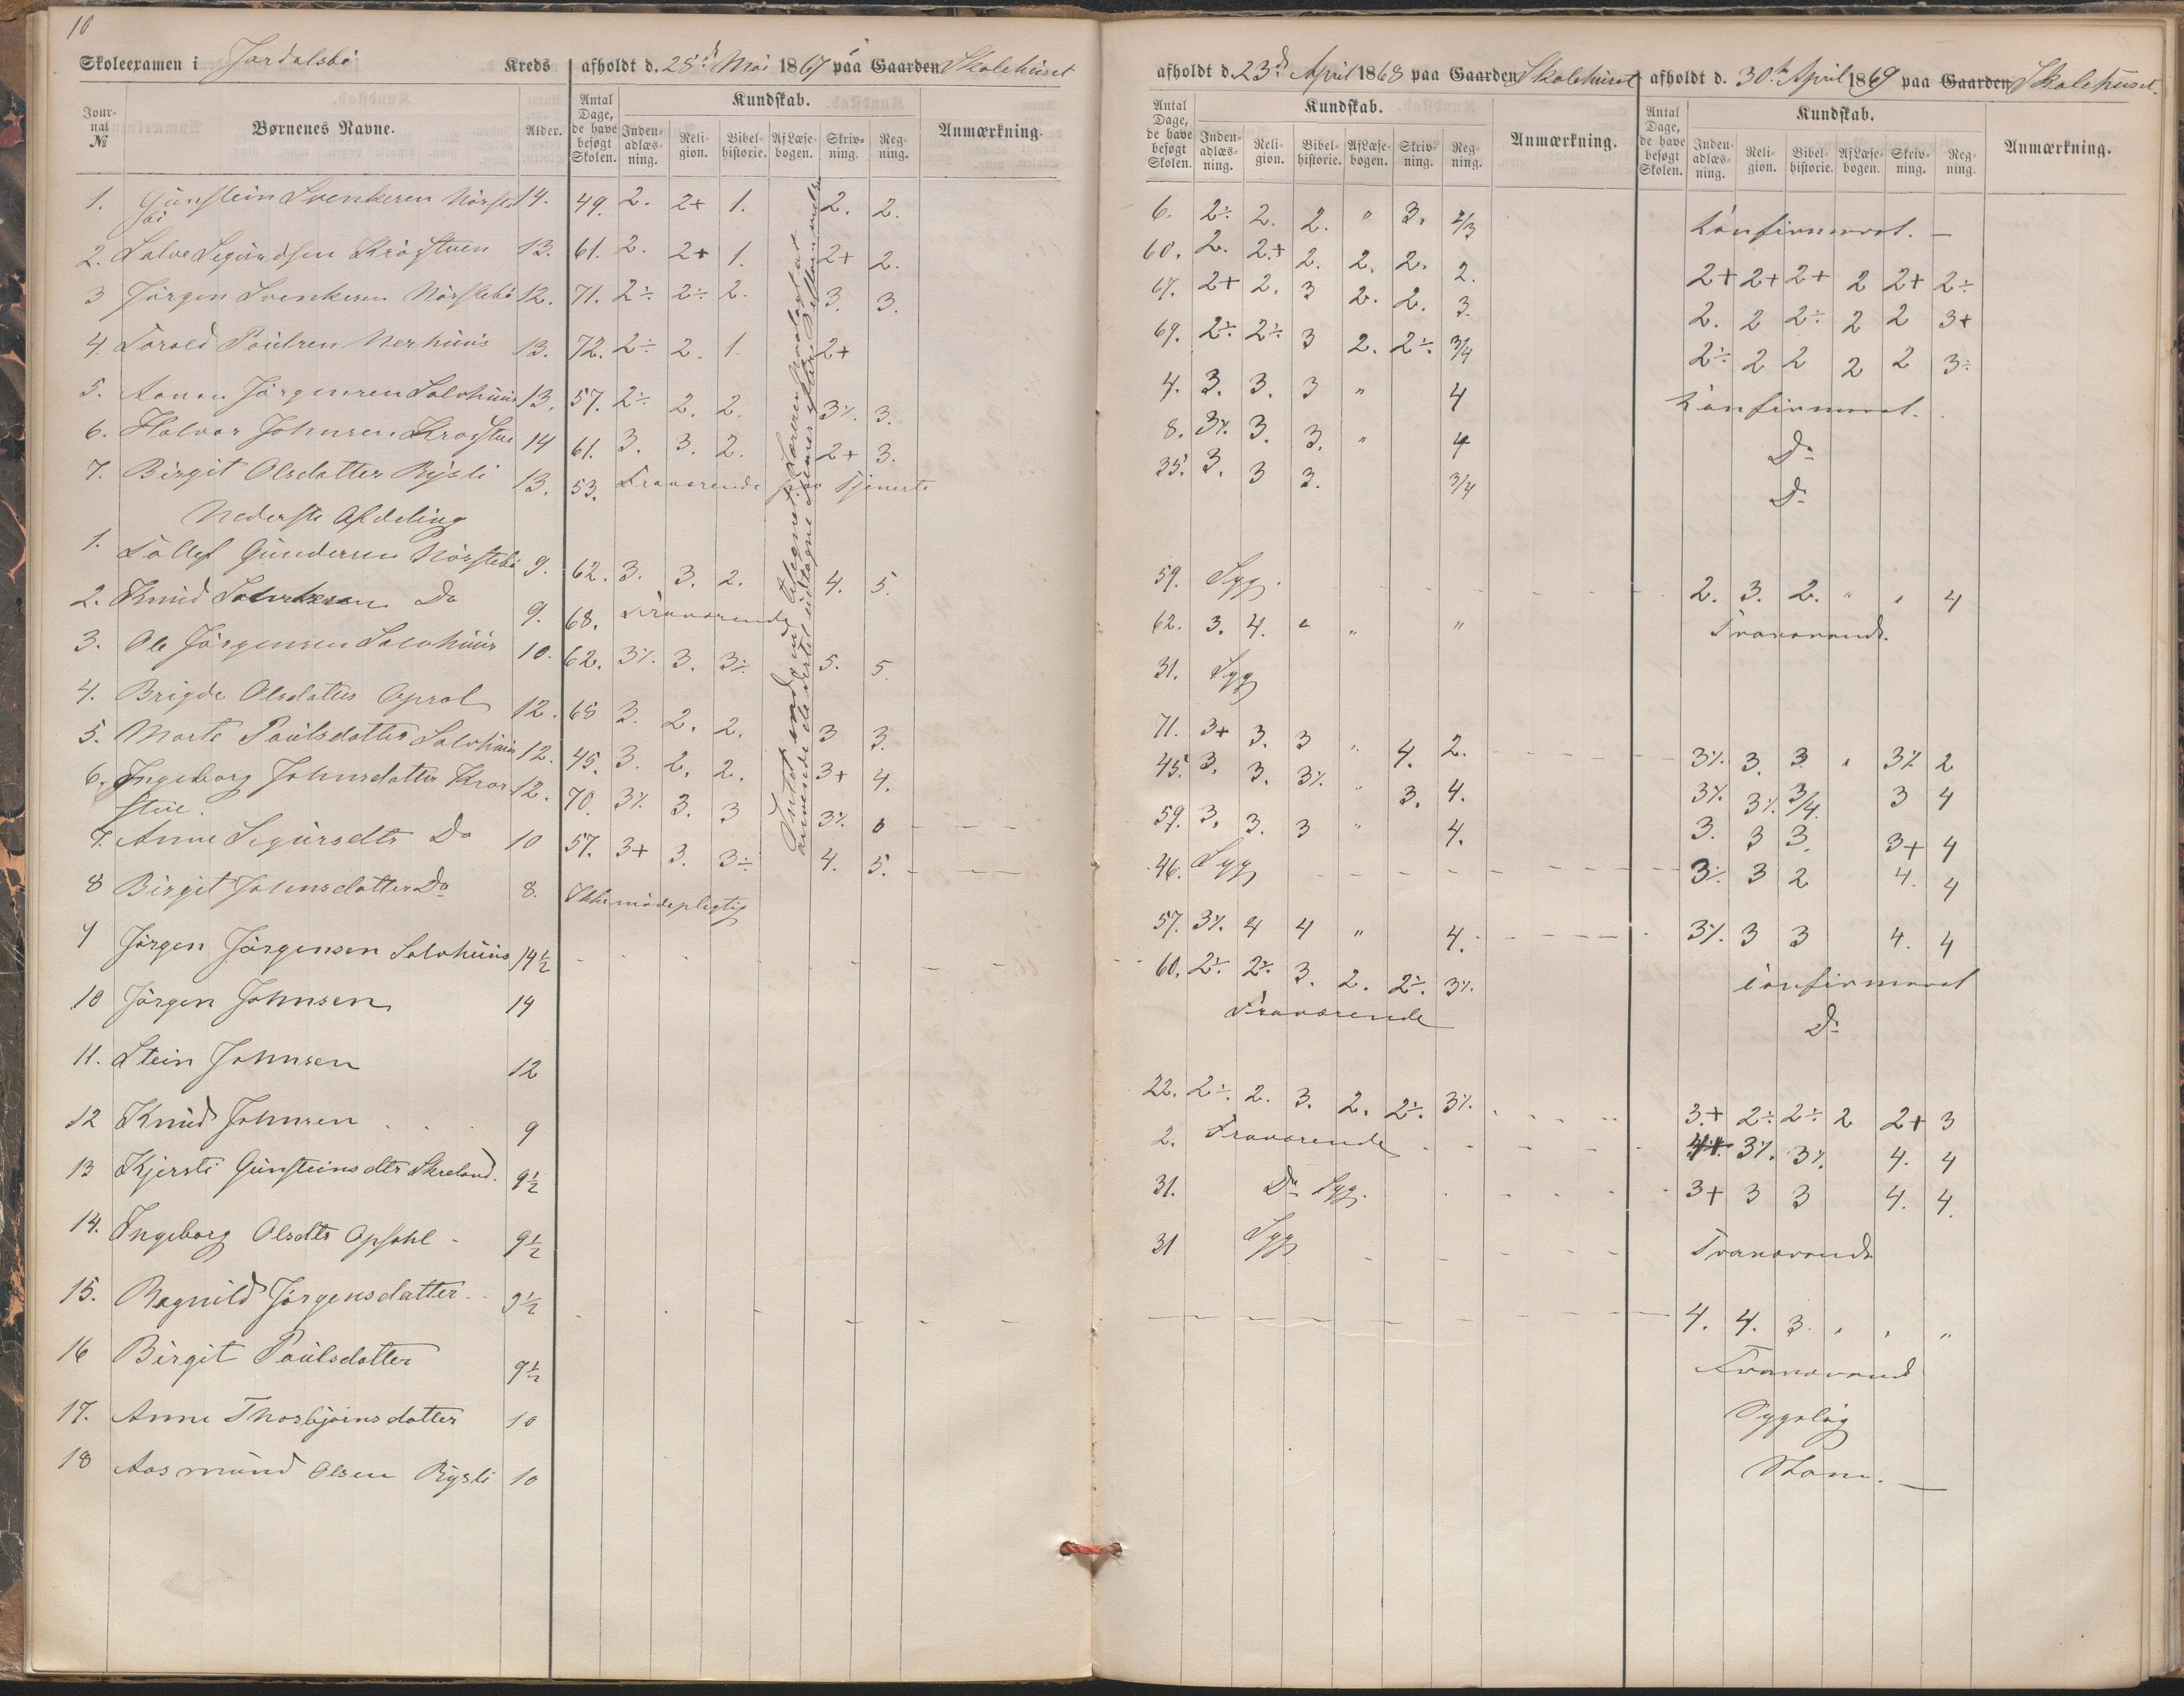 10
Skoleexamen i Jordalsbö Kreds afholdt d. 28de Mai 1867 paa Gaarden Skolehuset
Journal No Børnenes Navne. Alder. Antal Dage, de have besøgt Skolen. Kundskab. Indenadlæsning. Religion. Bibelhistorie. Af Læsebogen. Skrivning. Regning. Anmærkning.
1. Gunstein Svenkesen Nörste 14. 49. 2. 2+ 1. 2. 2.
bö
2. Salve Sigurdsen Krogstuen 13. 61. 2. 2+ 1. 2+ 2.
3 Jörgen Svenkesen Nörstebö 12. 71. 2÷ 2÷ 2. 3. 3.
4. Torald Poulsen Nerhuus 13. 72. 2÷ 2. 1. 2+
5. Aanon Jörgensen Solvhuus 13. 57. 2÷ 2. 2. 3÷ 3.
6. Halvor Johnsen Krogstue 14 61. 3. 3. 2. 2+ 3.
7. Birgit Olsdatter Rysli 13. 53. Fraværende Tjeneste
Nederste Afdeling
1. Tollef Gundersen Nörstebö 9. 62. 3. 3. 2. 4. 5.
2. Knud Do 9. 68. Fraværende
3. Ole Jörgensen Solvhuus 10. 62. 3÷ 3. 3÷ 5. 5.
4. Brigde Olsdatter Opsal 12. 68 3. 2. 2. 3 3.
5. Marte Poulsdatter Solvhuus 12. 45. 3. 2. 2. 3+ 4.
6. Ingeborg Johnsdatter Krog 12. 70. 3÷ 3. 3 3÷ 0
stue.
7. Anne Sigursdtr Do 10 57. 3+ 3. 3÷ 4. 5.
8 Birgit Johnsdatter Do 8. Ikke mödepligtig
9 Jörgen Jörgensen Solvhuus 14½
10 Jörgen Johnsen 14
11. Stein Johnsen 12
12 Knud Johnsen 9
13 Kjersti Gunsteinsdtr Skreland. 9½
14. Ingeborg Olsdtr Opsahl 9½
15. Ragnild Jörgensdatter 9½
16 Birgit Poulsdatter 9½
17. Anne Thorbjörnsdatter 10
18 Aasmund Olsen Rysli 10
afholdt d. 23de April 1868 paa Gaarden Skolehuset
Antal Dage, de have besøgt Skolen. Kundskab. Indenadlæsning. Religion. Bibelhistorie. Af Læsebogen. Skrivning. Regning. Anmærkning.
6. 2÷ 2. 2. " 3. 2/3
60. 2. 2.+ 2. 2. 2. 2.
67. 2+ 2. 3 2. 2. 3.
69. 2÷ 2÷ 3 2. 2÷ 3/4
4. 3. 3. 3 " 4
8. 3÷ 3. 3. " 4
35. 3. 3 3. 3/4
59. Syg.
62. 3. 4. " " "
31. Syg
71. 3+ 3. 3 " 4. 2.
45. 3. 3. 3÷ " 3. 4.
59. 3. 3. 3 " 4.
46. Syg
57. 3÷ 4 4 " 4.
60. 2÷ 2÷ 3. 2. 2÷ 3÷
Fraværende
22. 2÷ 2. 3. 2. 2÷ 3÷
2. Fraværende
31. Do Syg.
31 Syg
afholdt d. 30te April 1869 paa Gaarden Skolehuset.
Antal Dage, de have besøgt Skolen. Kundskab. Indenadlæsning. Religion. Bibelhistorie. Af Læsebogen. Skrivning. Regning. Anmærkning.
Konfirmeret.
2+ 2+ 2+ 2 2+ 2÷
2. 2 2÷ 2 2 3+
2÷ 2 2 2 2 3÷
Konfirmeret.
Do
Do
2. 3. 2. " " 4
Fraværende.
3÷ 3. 3 " 3÷ 2
3÷ 3÷ 3/4 3 4
3. 3 3. 3+ 4
3÷ 3 2 4. 4
3÷ 3 3 4. 4
Confirmeret
Do
3+ 2÷ 2÷ 2 2+ 3
3÷ 3÷ 4. 4
3+ 3 3 4. 4.
Fraværende
4. 4. 3. " " "
Fraværende
Sygelig